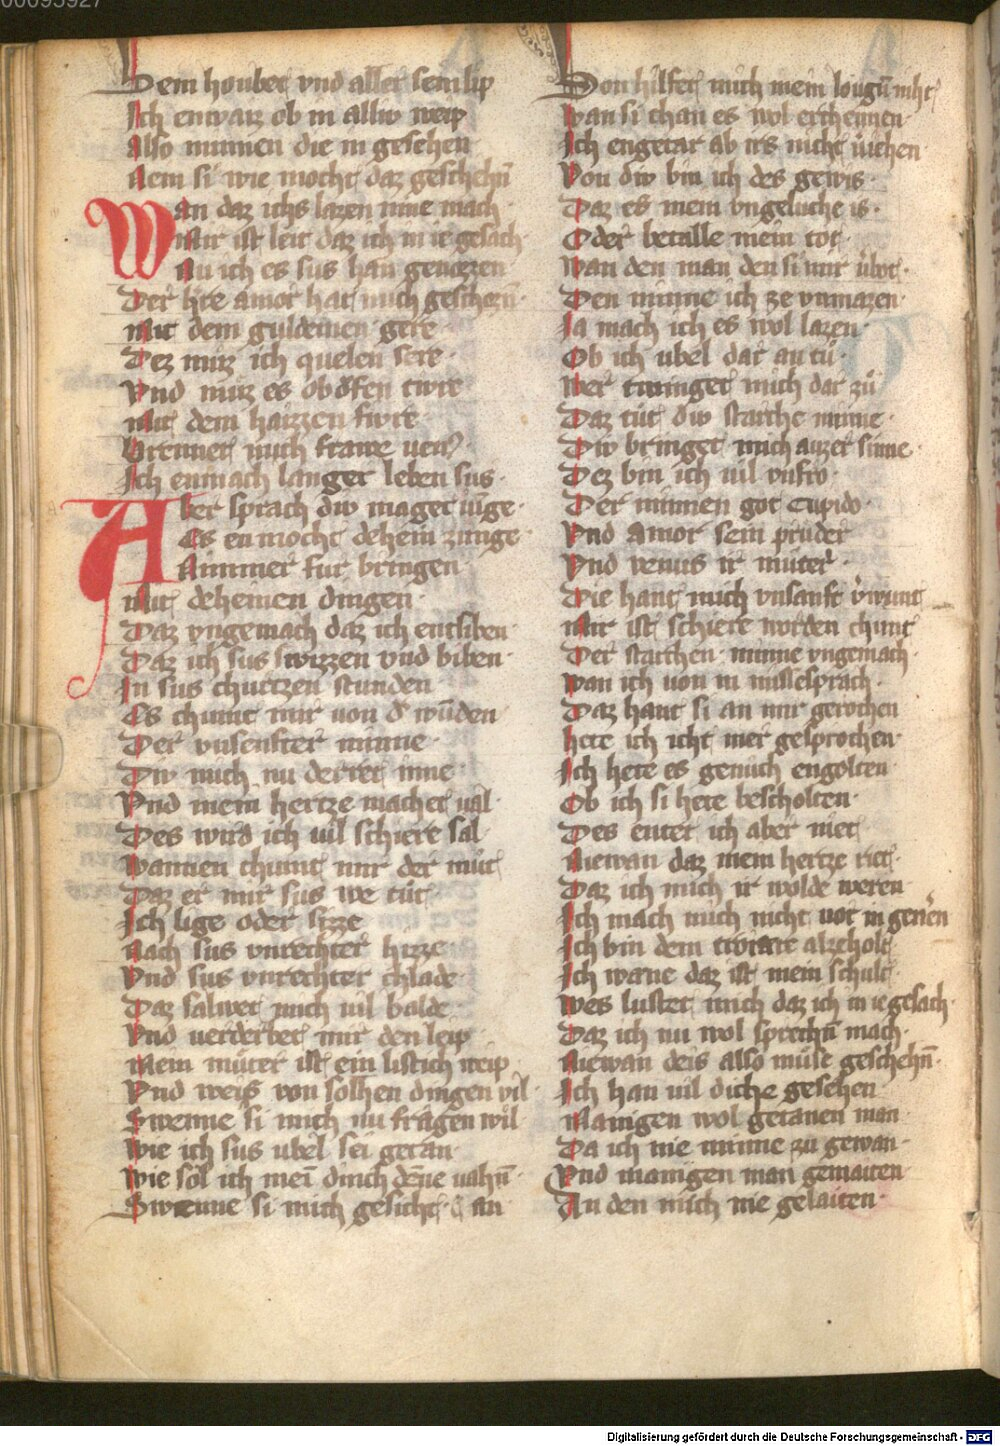 Dem houbet vnd aller sein lip
Ich enwaiz ob in alliv weip
Also minnen die in gesehen
Nem si wie mocht daz geschehn̄
Wan daz ichs lazen nine mach
Mir ist leit daz ich in ie gesach
Nu ich es sus han genozzen
Der h̓re amor hat mich geschozn̄
Mit dem guldeinen gere
Dez muz ich quelen sere
Vnd muz es ob offen twre
Mit dem haizzen fiwre
Brennet mich frawe ven9
Ich enmach langer leben sus
Aber sprach div maget iūge
Es en mocht dehein zunge
Nimmer fur bringen
Mit deheinen dingen
Daz vngemach daz ich entseben
Daz ich sus swizzen vnd biben
In sus churtzen stunden
Es chumt mir von d̓ wūden
Der vnsenfter minne
Div mich nu derret inne
Vnd mein hertze machet val
Des wird ich vil schiere sal
Wannen chumt mir der mut
Daz er mir sus we tut
Ich lige oder sizze
Nach sus vnrechter hizze
Vnd sus vnrechter chlade
Daz salwet mich vil balde
Vnd verderbet mir den leip
Mein mut̊er ist ein listich weip
Vnd weiß von solhen dingen vil
Swenne si mich nu fragen wil
Wie ich sus ubel sei getan
Wie sol ich mei᷑ dinch dēne vahn̄
Swenne si mich gesicht an
Son hilfet mich mein lougn̄ niht
Wan si chan es wol erchennen
Ich engetar ab irs nicht iu̓ichen
Von div bin ich des gewis
Daz es mein vngeluche is
Oder betalle mein tot
Wan den man den si mir v̓bot
Den minne ich ze vnmazen
Ja mach ich es wol lazen
Ob ich ubel dar an tů
Wer twinget mich dar zů
Daz tůt div starche minne
Div bringet mich auzer sinne
Dez bin ich vil vnfro
Der minnen got Cupido
Vnd Amor sein pruder
Vnd venus ir můter
Die hant mich vnsanft v̓wunt
Mir ist schiere worden chunt
Der starchen minne vngemach
Wan ich von in misselsprach
Daz hant si an mir gerochen
Hete ich icht mer gesprochen
Ich hete es genuch engolten
Ob ich si hete bescholten
Des entet ich aber niet
Niewan daz mein hertze riet
Daz ich mich ir wolde weren
Ich mach mich nicht vor in gen̓en
Ich bin dem tiwrare alzeholt
Ich wæne daz ist mein schult
Wes lustet mich daz ich in ie gesach
Daz ich nu wol sprechn̄ mach
Niewan deis also můse geschehn̄
Ich han vil diche gesehen
Manigen wol getanen man
Da ich nie minne zu gewan
Vnd manigen man gemaiten
An den mich nie gelaiten
Digitalisierung gefördert durch die Deutsche Forschungsgemeinschaft - DFG